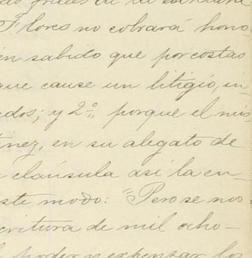 Flores no cobrará hono
en sabido que por costas
que cause un litigio, in
edos; y 2º porque el mis
ínez, en su alegato de
cláusula así la en-
ste modo: "Pero se nos
critura de mil ocho-